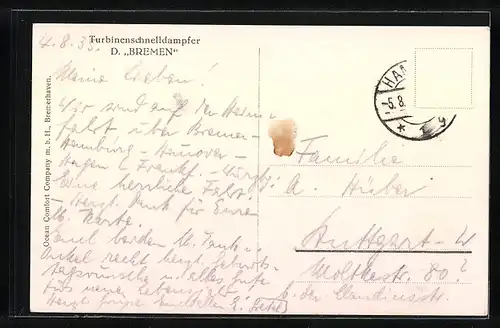 4.8.35.
Turbinenschnelldampfer
D. „BREMEN“
Meine Lieben!
Wir sind auf der Heim-
fahrt über Bremen-
Hamburg - Hannover -
Hagen - Frankf. - Würzbg.
Eine herrliche Fahrt!
Herzl. Dank für Eure
lb. Karte.
Euch beiden lb. Tante u.
Onkel recht herzl. Geburts-
tagswünsche u. alles gute
fürs neue Lebensjahr
Herzl. Grüße
Ocean Comfort Company m. b. H., Bremerhaven.
HA
-5.8.
Familie
A. Huber
Stuttgart-W
Moltkestr. 80?
b. der